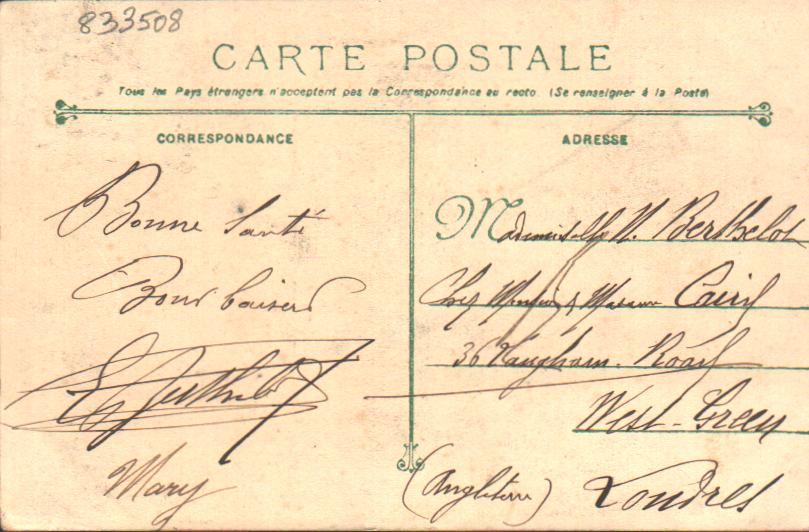 833508
CARTE POSTALE
Tous les Pays étrangers n'acceptent pas la Correspondance au recto. (Se renseigner à la Poste)
CORRESPONDANCE
Bonne Santé
Bons baisers
E Berthelot
Mary
ADRESSE
Mademoiselle M. Berthelot
Chez Monsieur & Madame
36 Vaughan Road
West-Green
(Angleterre) Londres